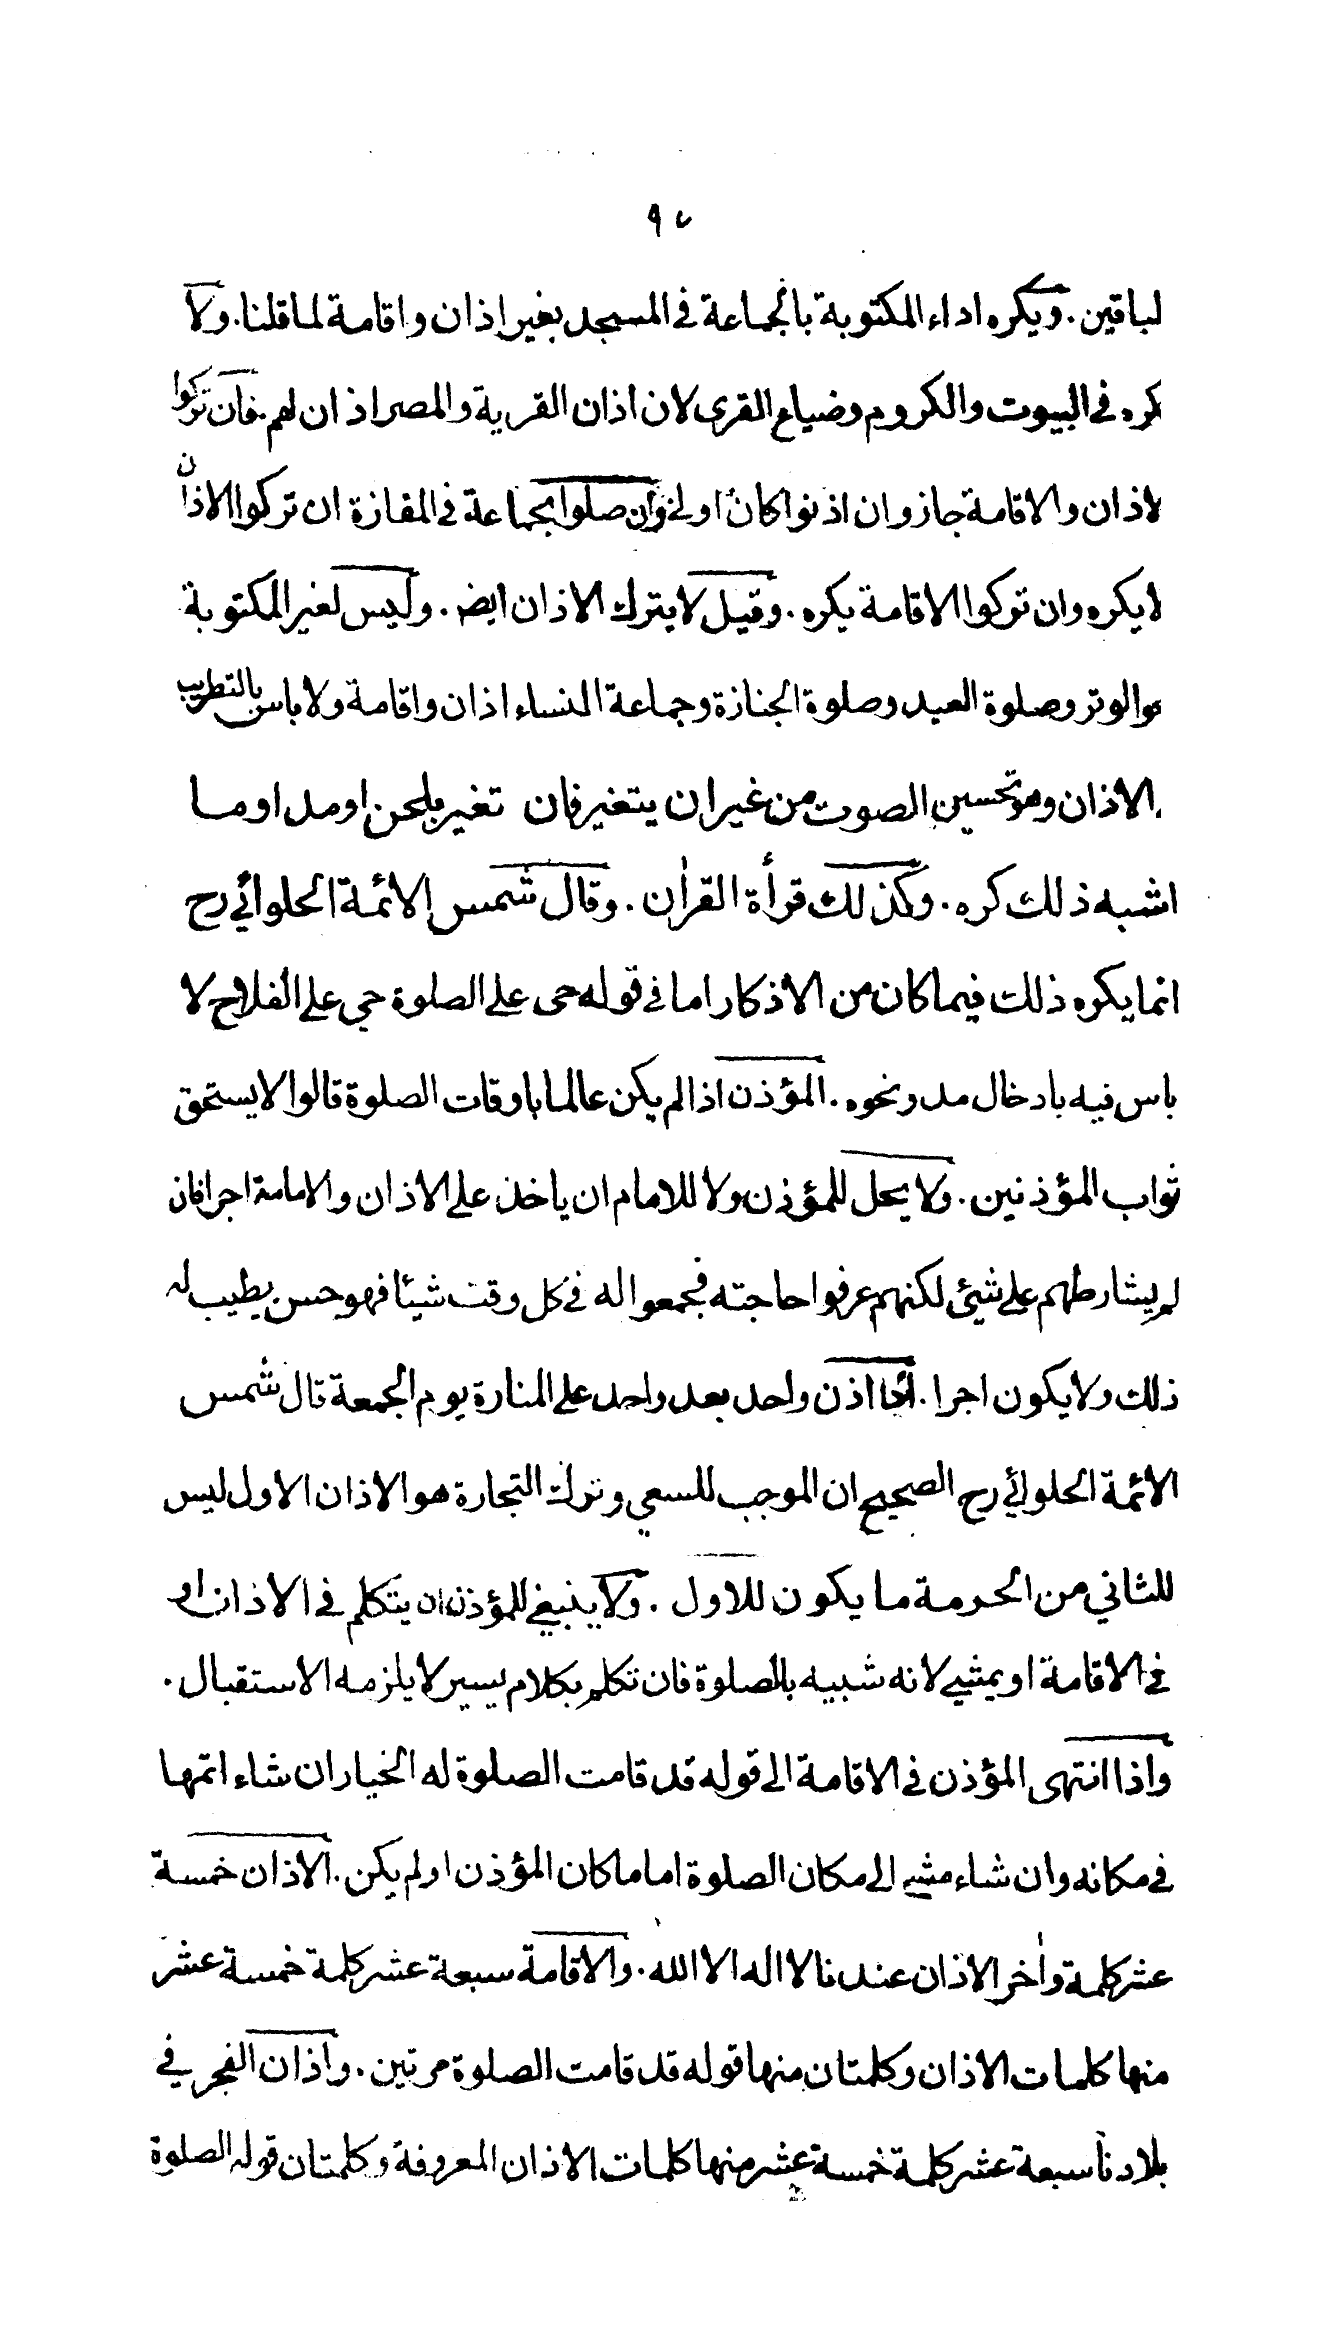 ٩٧
لباقين . ويكره اداء المكتوبة بالجماعة في المسجد بغير اذان واقامة لما قلنا . ولا
كره في البيوت والكروم وضياع القرى لان اذان القرية والمصر اذان لهم . فان تركوا
لاذان والاقامة جاز وان اذنوا كان اولى وان صلوا بجماعة في المفازة ان تركوا الاذان
لا يكره وان تركوا الاقامة يكره . وقيل لا يترك الاذان ايضا . وليس لغير المكتوبة
والوتر وصلوة العيد وصلوة الجنازة وجماعة النساء اذان واقامة ولا باس بالتطريب
الاذان وهو تحسين الصوت من غير ان يتغير فان تغير بلحن او مد او ما
اشبه ذلك كره . وكذلك قرأة القرأن . وقال شمس الائمة الحلوائي رح
انما يكره ذلك فيما كان من الاذكار اما في قوله حى على الصلوة حي على الفلاح لا
باس فيه بادخال مد ونحوه . المؤذن اذا لم يكن عالما باوقات الصلوة قالوا لا يستحق
ثواب المؤذنين . ولا يحل للمؤذن ولا للامام ان ياخذ على الاذان والامامة اجرا فان
لم يشارطهم على شيئ لكنهم عرفوا حاجته فجمعوا له في كل وقت شيئا فهو حسن يطيب له
ذلك ولا يكون اجرا . اذا اذن واحد بعد واحد على المنارة يوم الجمعة قال شمس
الائمة الحلوائي رح الصحيح ان الموجب للسعي وترك التجارة هو الاذان الاول ليس
للثاني من الحرمة ما يكون للاول . ولا ينبغي للمؤذن ان يتكلم في الاذان او
في الاقامة او يمشي لانه شبيه بالصلوة فان تكلم بكلام يسير لا يلزمه الاستقبال .
واذا انتهى المؤذن في الاقامة الى قوله قد قامت الصلوة له الخيار ان شاء اتمها
في مكانه وان شاء مشى الى مكان الصلوة اماما كان المؤذن او لم يكن . الاذان خمسة
عشر كلمة وأخر الاذان عندنا لا اله الا الله . والاقامة سبعة عشر كلمة خمسة عشر
منها كلمات الاذان وكلمتان منها قوله قد قامت الصلوة مرتين . واذان الفجر في
بلادنا سبعة عشر كلمة خمسة عشر منها كلمات الاذان المعروفة وكلمتان قوله الصلوة